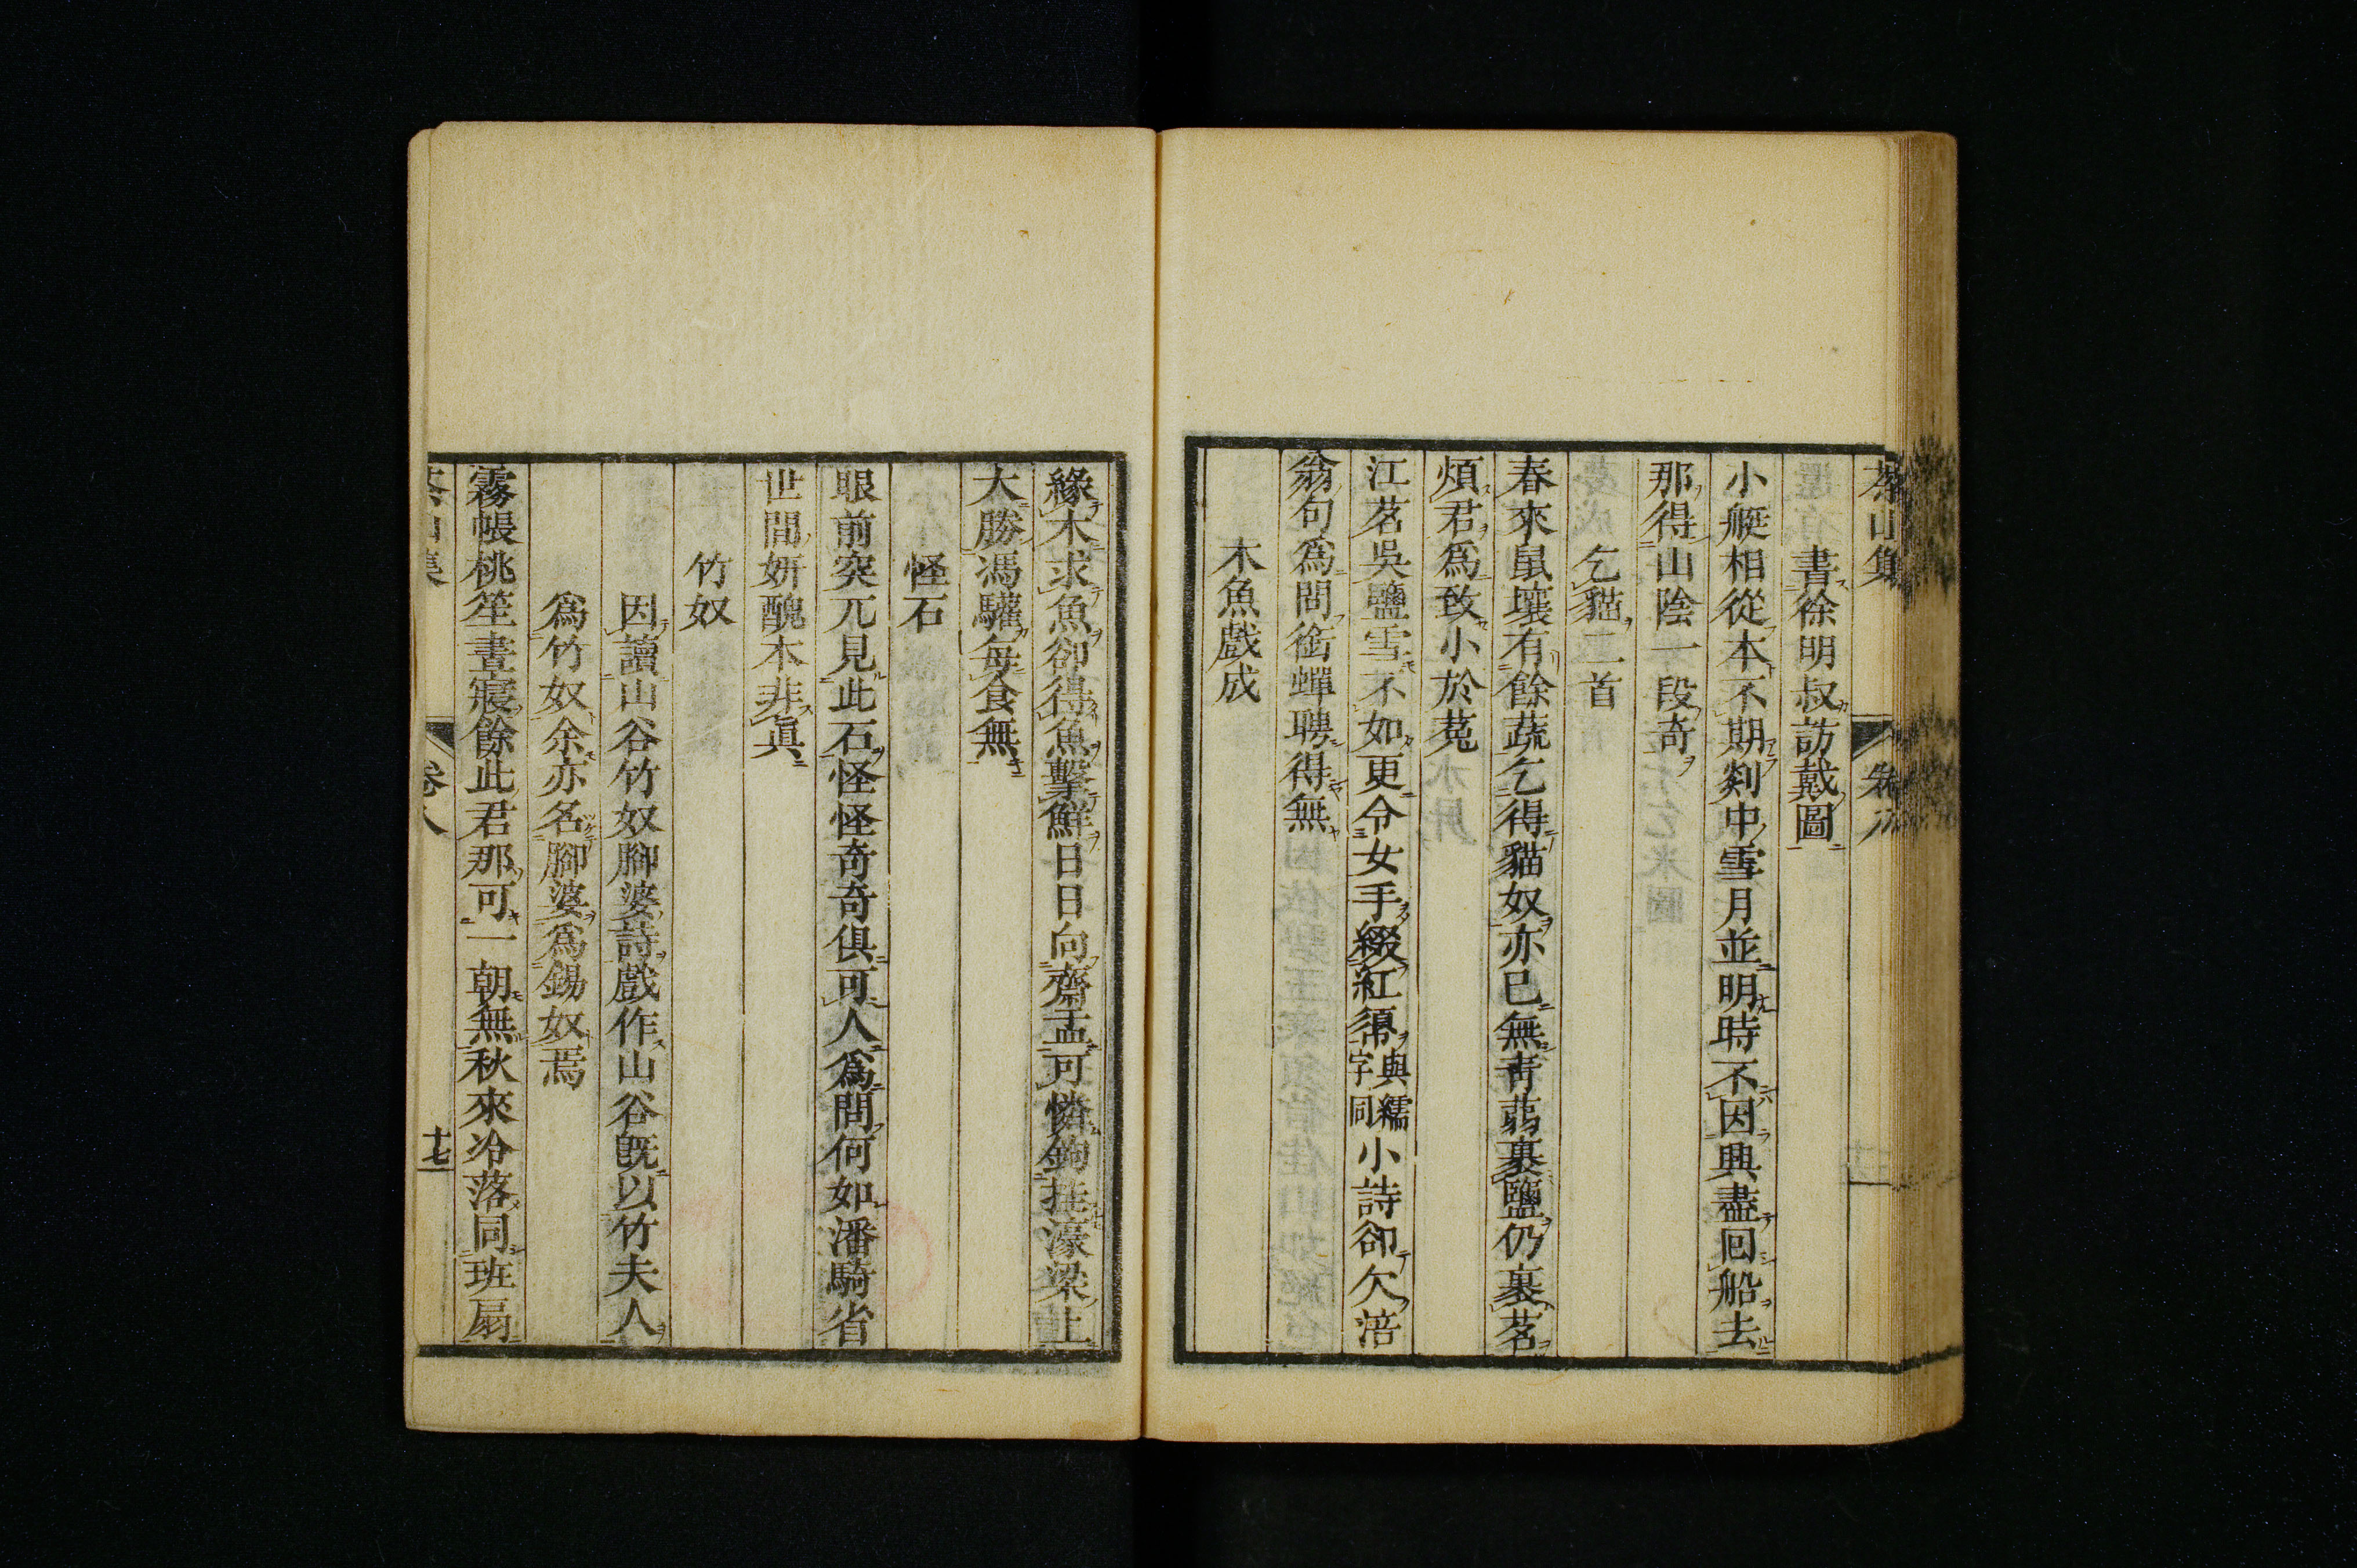 茶山集 卷八
書徐明叔訪戴圖
小艇相從本不期剡中雪月並明時不因興盡回船去
那得山陰一段奇
乞貓二首
春來鼠壤有餘蔬乞得貓奴亦已無青蒻裹鹽仍裹茗
煩君爲致小於菟
江茗吳鹽雪不如更令女手綴紅𦆯與繻字同小詩卻欠涪
翁句爲問銜蟬聘得無
木魚戲成
緣木求魚卻得魚擊鮮日日向齋盂可憐鉤挂濠梁上
大勝馮驩每食無
怪石
眼前突兀見此石怪怪奇奇俱可人爲問何如潘騎省
世間妍醜本非眞
竹奴
因讀山谷竹奴腳婆詩戲作山谷旣以竹夫人
爲竹奴余亦名腳婆爲錫奴焉
霧帳桃笙晝寢餘此君那可一朝無秋來冷落同班扇
茶山集 卷八 十七